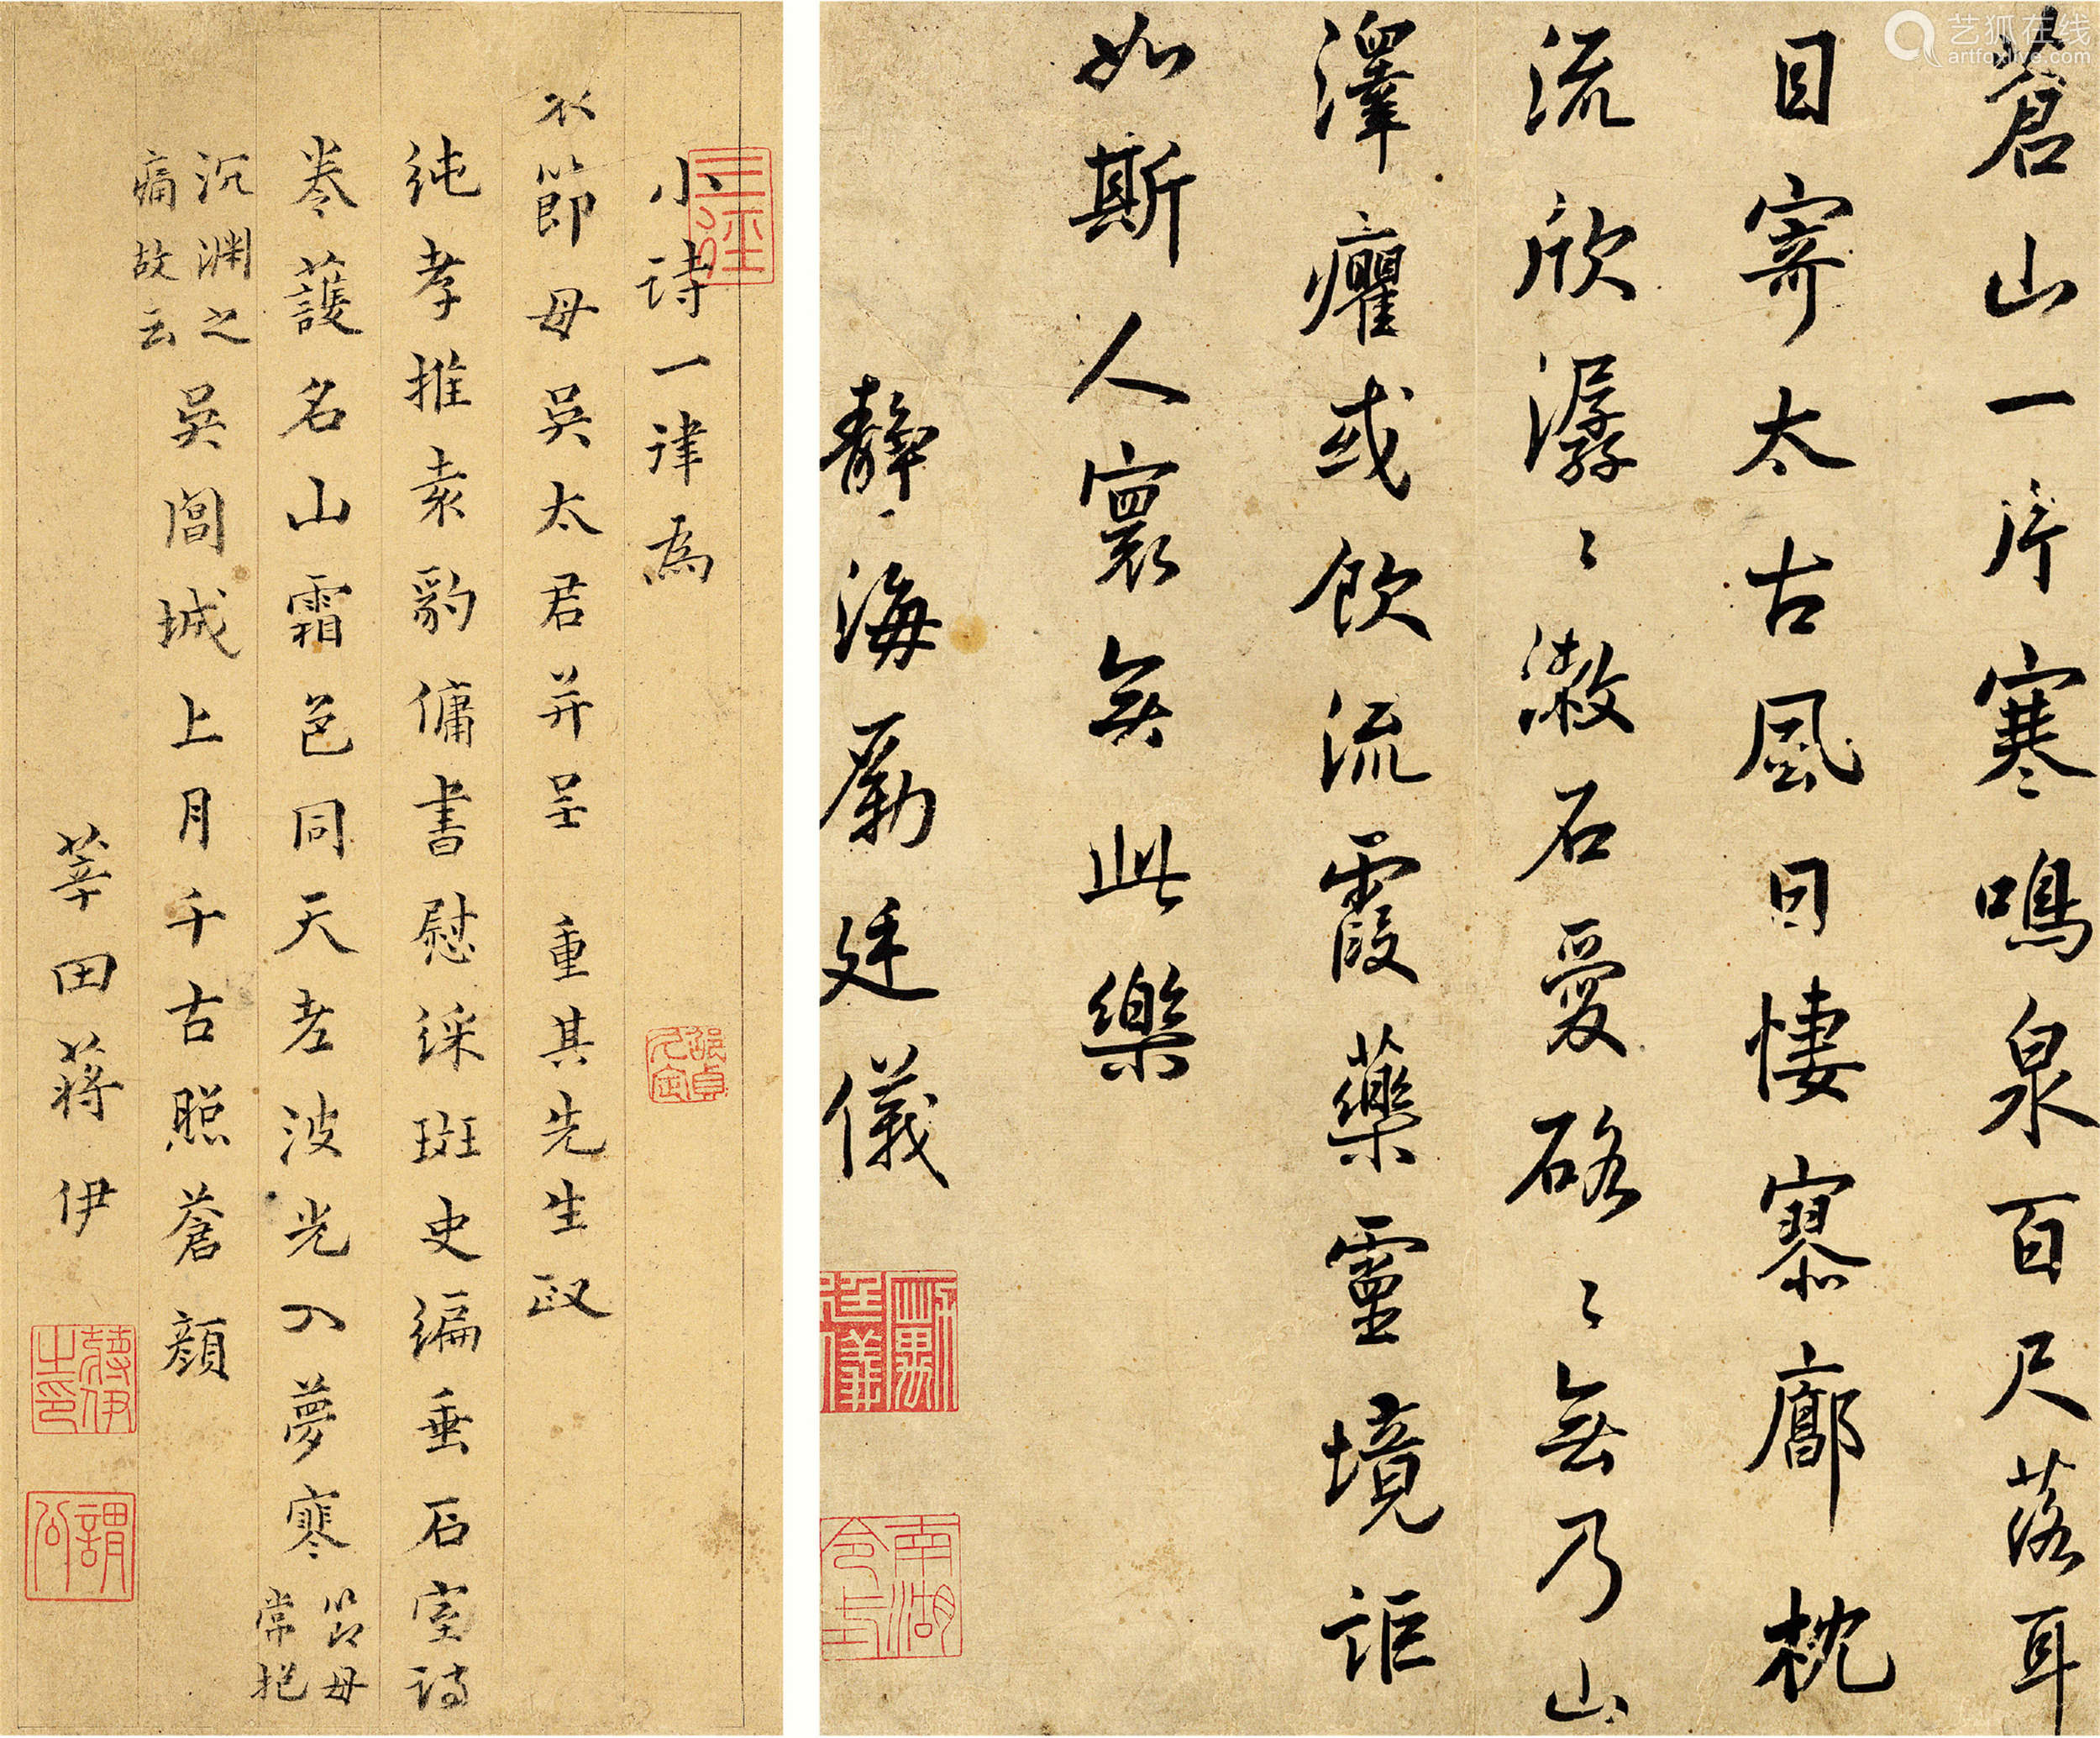 蒼山一片寒鳴泉百尺落耳
目寄太古風日悽寥廊枕
流欣潺〻漱石愛硌〻無乃山
澤癯或飲流霞藥靈境詎
如斯人寰無此樂
靜海勵廷儀
勵廷儀
南湖
小詩一律為
節母吳太君并呈 重其先生政
純孝推索豹傭書慰綵斑史編垂石室詩
卷護名山霜色同天老波光入夢寒節母常抱
沉渊之痛故云吳閶城上月千古照蒼顏
莘田蔣伊
三徑
蔣伊之印
謂公
艺狐在线
artfoxlive.com